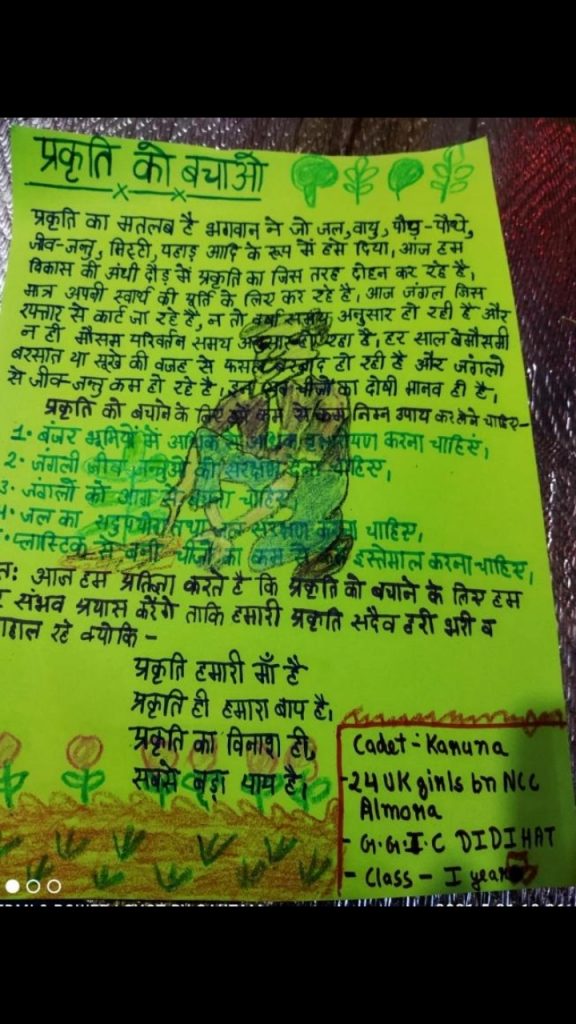 प्रकृति को बचाओ
प्रकृति का मतलब है भगवान ने जो जल, वायु, पौधु-पौधे,
जीव-जन्तु, मिट्टी, पहाड़ आदि के रूप में हमें दिया, आज हम
विकास की अंधी दौड़ में प्रकृति का जिस तरह दोहन कर रहे है,
मात्र अपनी स्वार्थ की पूर्ति के लिए कर रहे है, आज जंगल जिस
रफ्तार से काटे जा रहे है, न तो वर्षा समय अनुसार हो रही है और
न ही मौसम परिवर्तन समय अनुसार हो रहा है, हर साल बेमौसमी
बरसात या सूखे की वजह से फसल बरबाद हो रही है और जंगलो
से जीव-जन्तु कम हो रहे है, इन सब चीजो का दोषी मानव ही है,
प्रकृति को बचाने के लिए कम से कम निम्न उपाय करने चाहिए-
1. बंजर भूमियों में अधिक से अधिक वृक्षारोपण करना चाहिए,
2. जंगली जीव जन्तुओ को संरक्षण देना चाहिए,
3. जंगलों को आग से बचाना चाहिए
4. जल का सदुपयोग तथा जल संरक्षण करना चाहिए,
प्लास्टिक से बनी चीजों का कम से कम इस्तेमाल करना चाहिए,
आज हम प्रतिज्ञा करते है कि प्रकृति को बचाने के लिए हम
संभव प्रयास करेंगे ताकि हमारी प्रकृति सदैव हरी भरी व
रहे क्योकि -
प्रकृति हमारी माँ है
प्रकृति ही हमारा बाप है,
प्रकृति का विनाश ही,
सबसे बड़ा पाप है,
Cadet - Karuna
- 24 UK girls bn NCC
Almora
- G.G.I.C DIDIHAT
- Class - I year